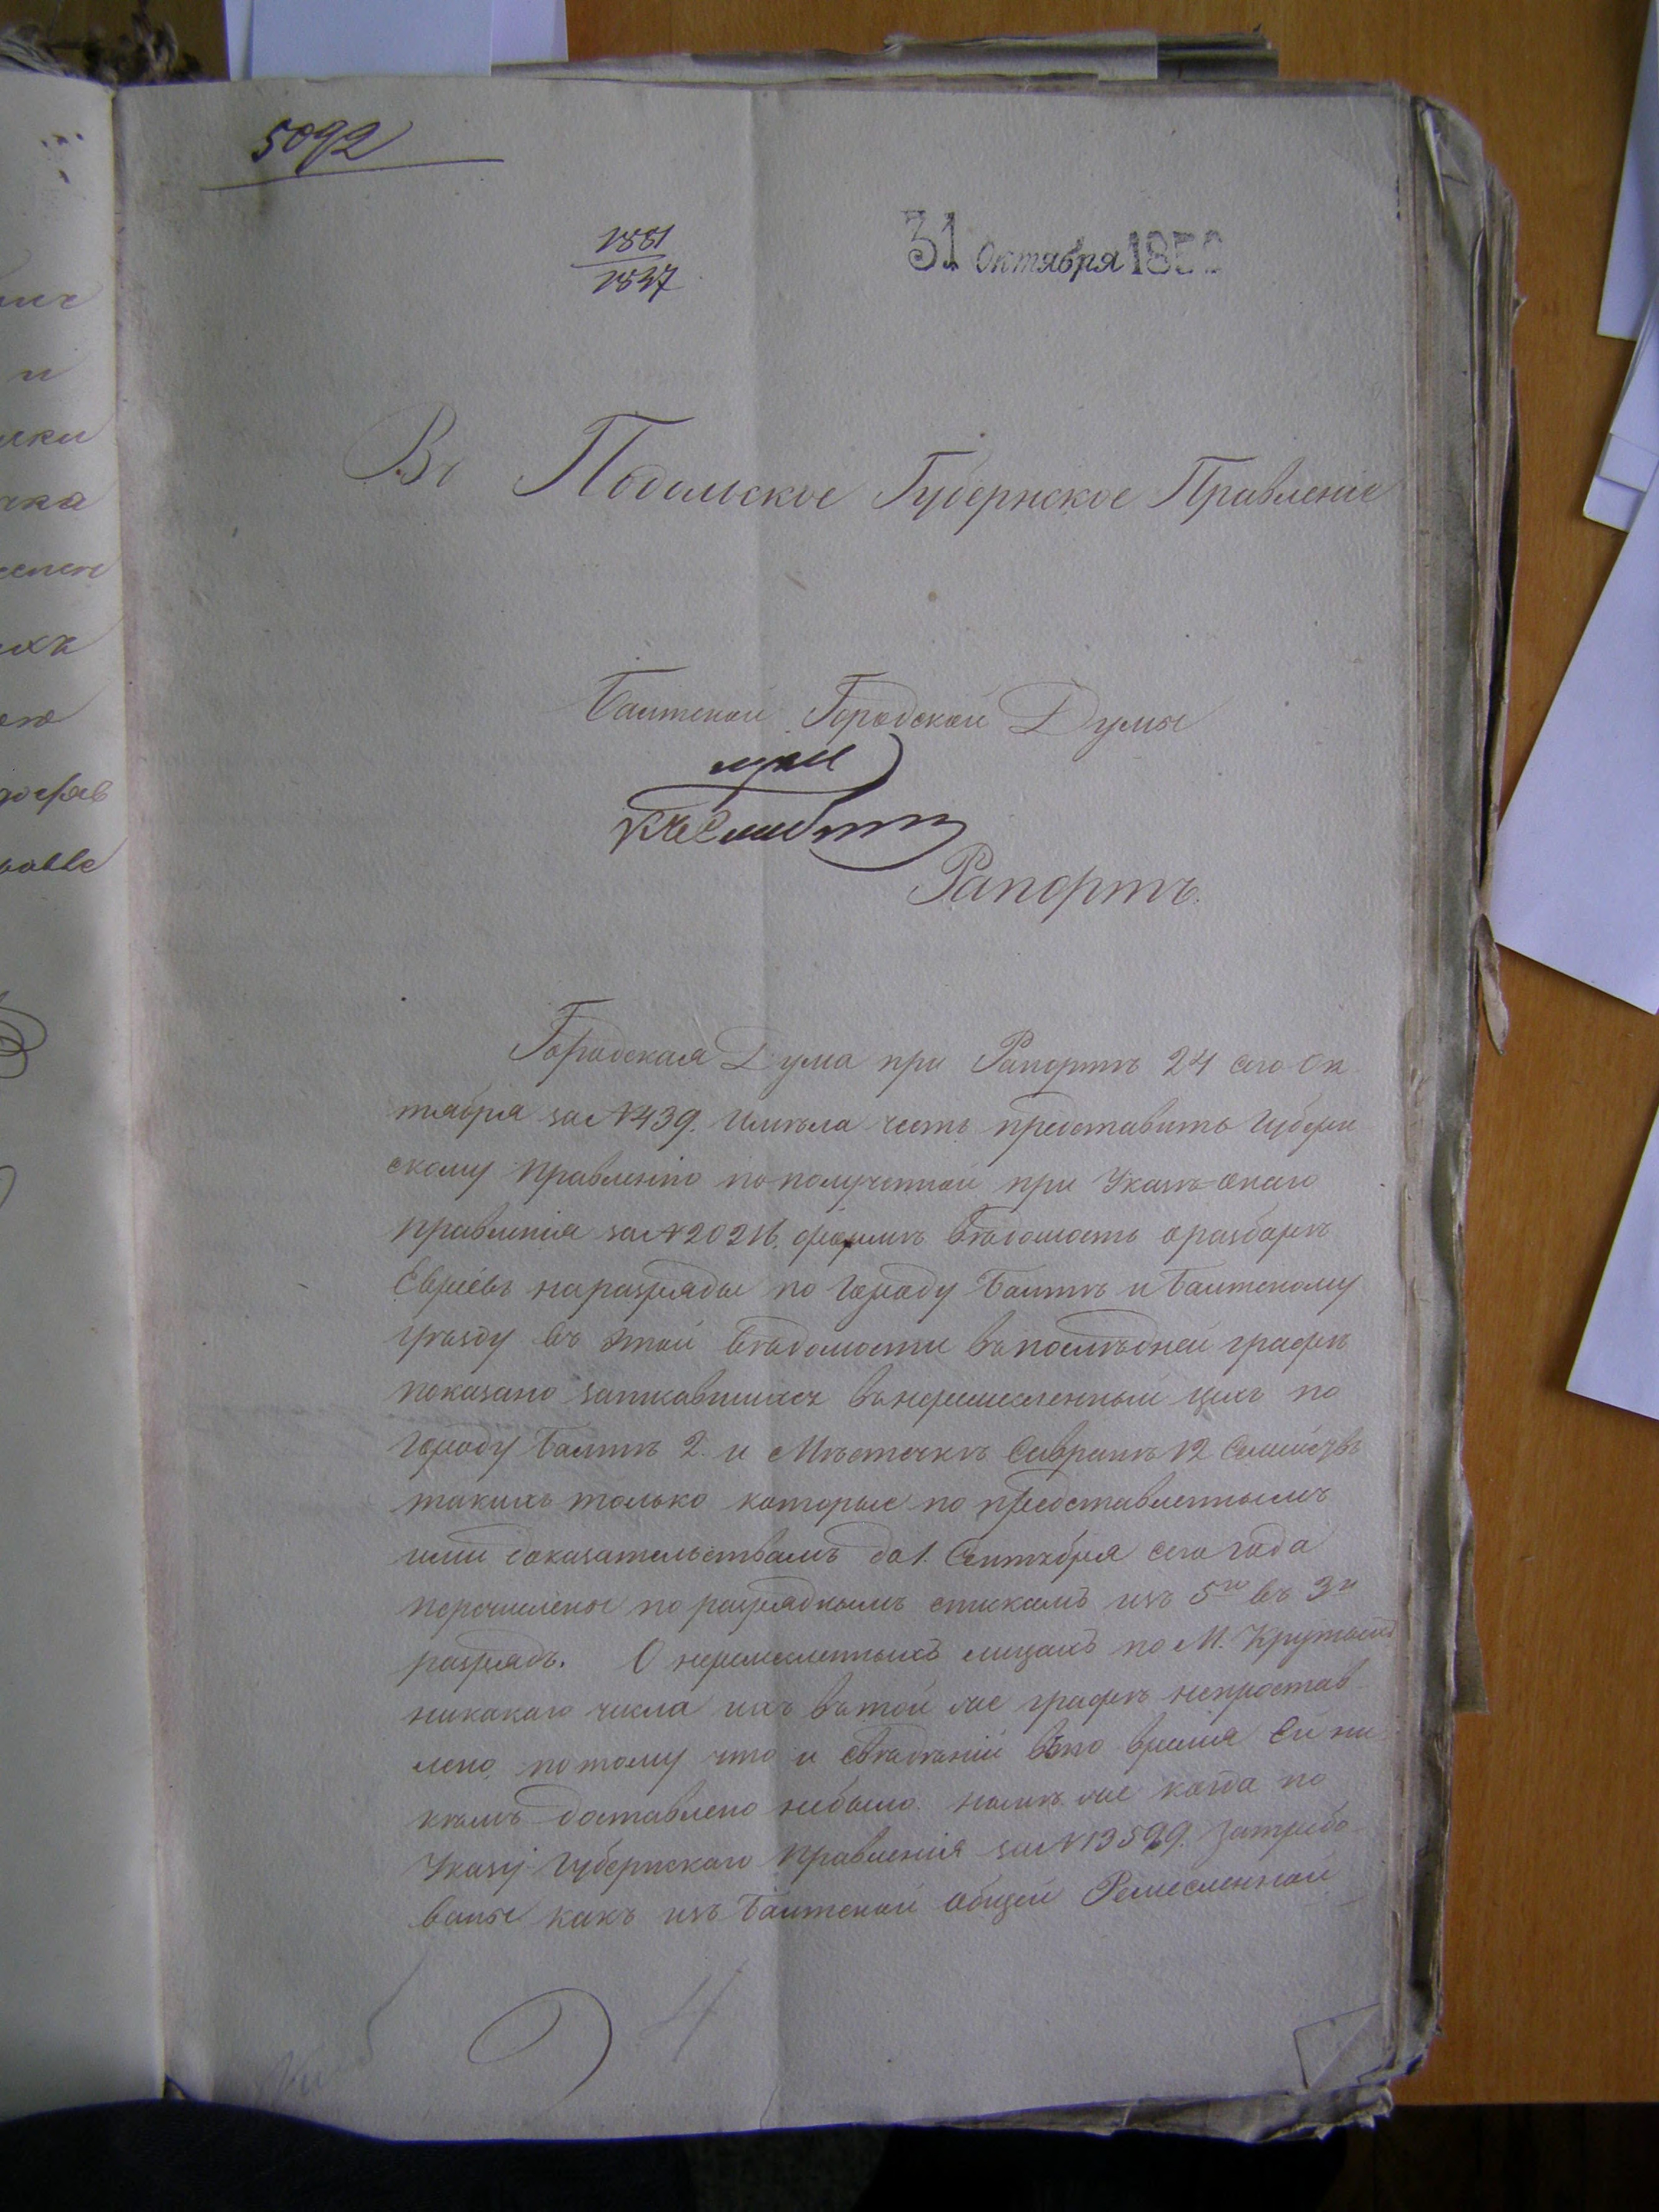 5092
1881
1837
31 Октября 185
Въ Подольское Губернское Правленіе
Балтской Городской Думы
Рапортъ.
Городская Дума при Рапортѣ 24 сего Ок
тября за № 439. имѣла честь представить Губерн
скому Правленію по полученной при Указѣ онаго
Правленія за № 20216. формѣ Вѣдомость о разборѣ
Евреевъ на разряды по городу Балтѣ и Балтскому
уѣзду въ этой Вѣдомости въ послѣдней графѣ
показано записавшихся въ неремесленный цехъ по
городу Балтѣ 2. и Мѣстечкѣ Савранѣ 12 Семействъ
такихъ только которые по представленнымъ
ими доказательствамъ до 1. Сентября сего года
перечислены по разряднымъ спискамъ изъ 5го въ 3й
разрядъ. О неремесленныхъ лицахъ по М. Крутымъ
никакаго числа ихъ въ той же графѣ непростав
лено потому что и свѣденій въ то время ей ни
кѣмъ доставлено небыло. нынѣ же когда по
Указу Губернскаго Правленія за № 13599. Затребо
ваны какъ изъ Балтской общей Ремесленной
4